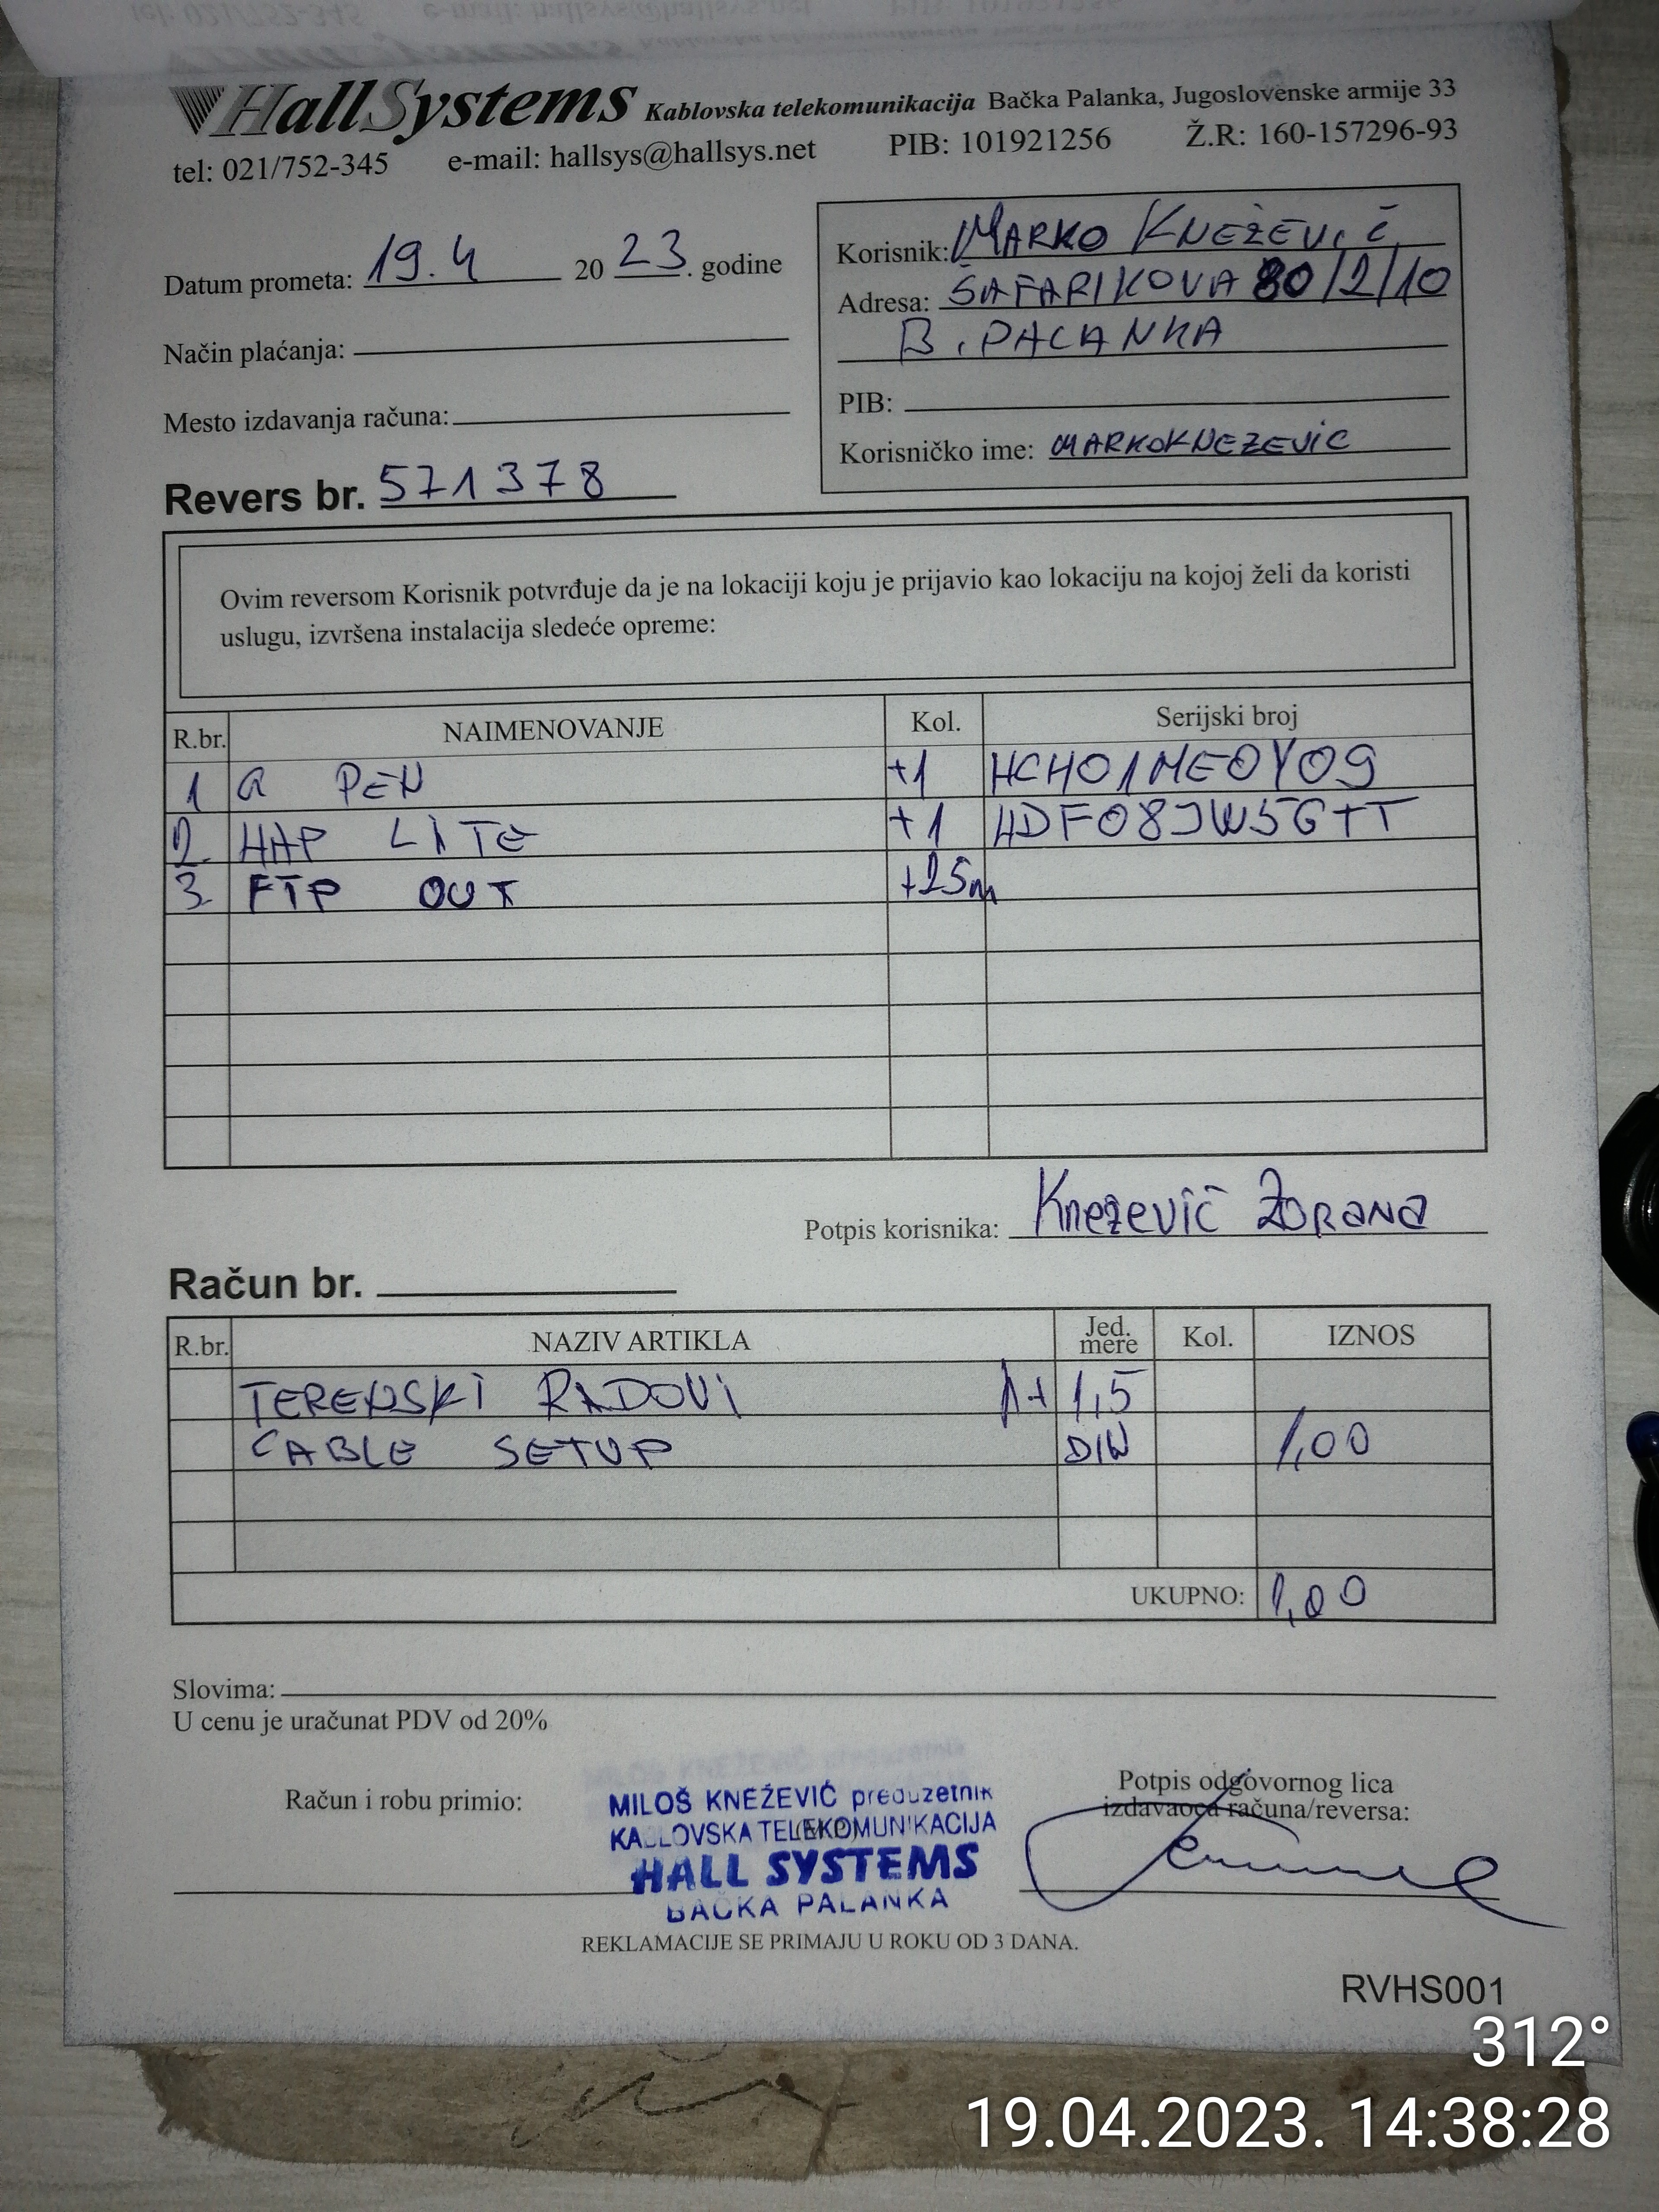 HallSystems Kablovska telekomunikacija Bačka Palanka, Jugoslovenske armije 33
tel: 021/752-345 e-mail: hallsys@hallsys.net PIB: 101921256 Ž.R: 160-157296-93
Datum prometa: 19.4 20 23. godine
Način plaćanja:
Mesto izdavanja računa:
Revers br. 571378
Korisnik: MARKO KNEŽEVIĆ
Adresa: ŠAFARIKOVA 80/2/10
B. PALANKA
PIB:
Korisničko ime: MARKOKNEZEVIC
Ovim reversom Korisnik potvrđuje da je na lokaciji koju je prijavio kao lokaciju na kojoj želi da koristi
uslugu, izvršena instalacija sledeće opreme:
R.br. NAIMENOVANJE Kol. Serijski broj
1 G PEN +1 HCH01MEOYO9
2. HAP LITE +1 HDF08JW5GTT
3. FTP OUT +25m
Potpis korisnika: Knezević Zorana
Račun br.
R.br. NAZIV ARTIKLA Jed. mere Kol. IZNOS
TERENSKI RADOVI 1+ 1,5
CABLE SETUP DIN 1,00
UKUPNO: 1,00
Slovima:
U cenu je uračunat PDV od 20%
Račun i robu primio:
MILOŠ KNEŽEVIĆ preduzetnik
KABLOVSKA TELEKOMUNIKACIJA
HALL SYSTEMS
BAČKA PALANKA
Potpis odgovornog lica
izdavaoca računa/reversa:
REKLAMACIJE SE PRIMAJU U ROKU OD 3 DANA.
RVHS001
312°
19.04.2023. 14:38:28